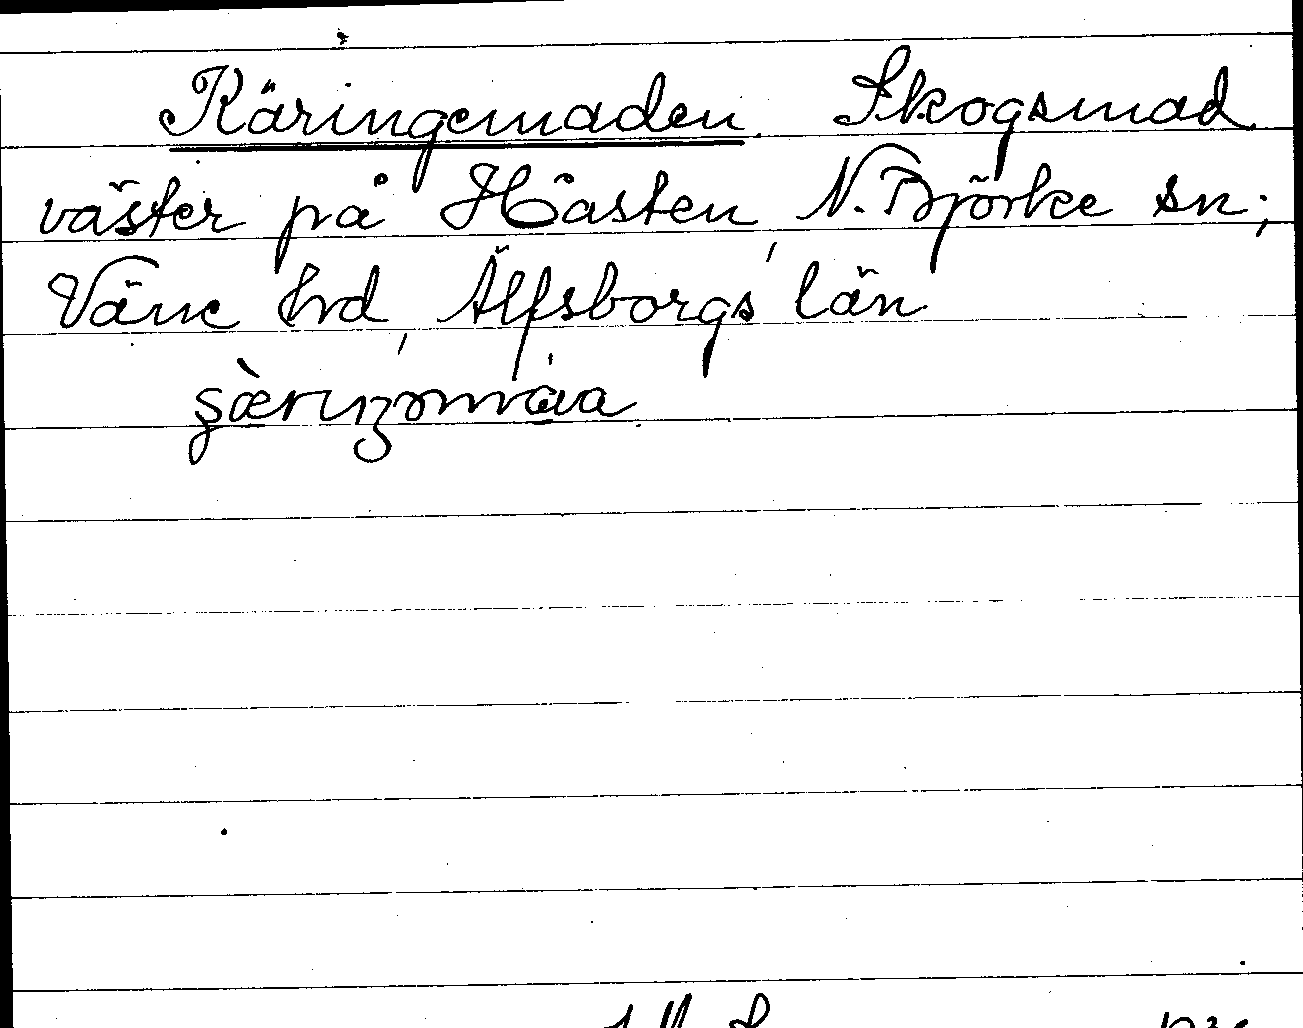 Käringemaden. Skogsmad
väster på Håsten, N. Björke sn;
Väne hd, Älfsborgs län